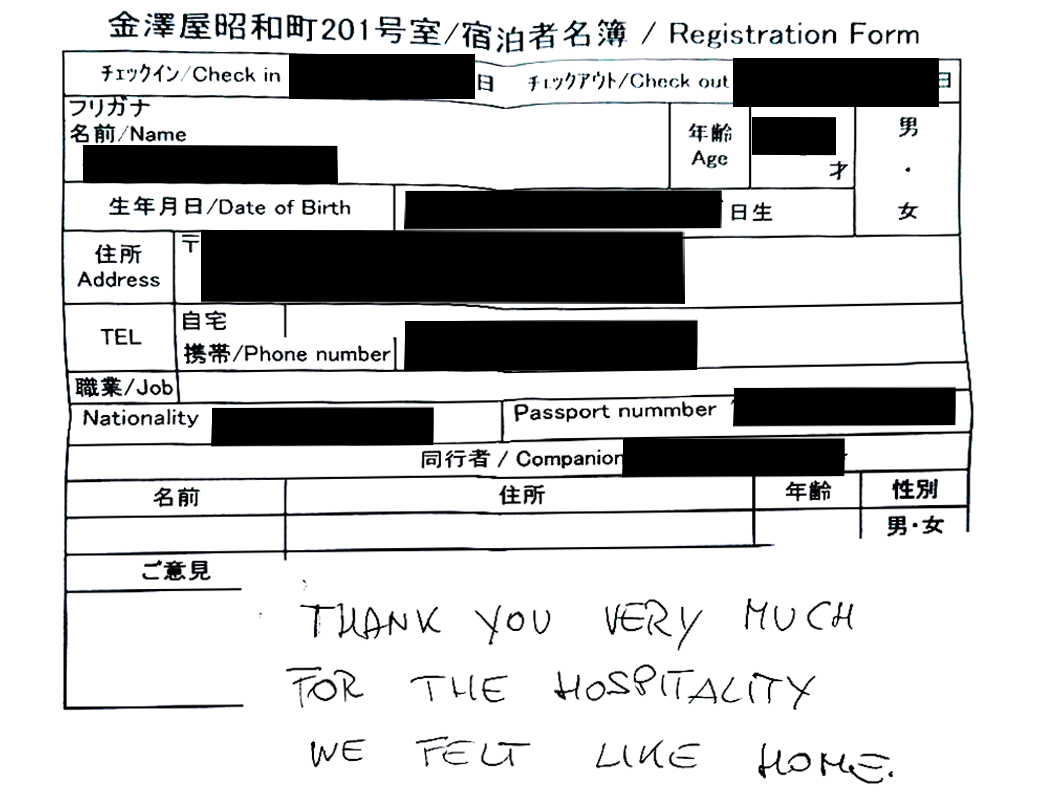 金澤屋昭和町201号室/宿泊者名簿 / Registration Form
チェックイン/Check in 日 チェックアウト/Check out 日
フリガナ
名前/Name
年齢
Age
才
男
・
女
生年月日/Date of Birth 日生
住所
Address
〒
TEL
自宅
携帯/Phone number
職業/Job
Nationality Passport nummber
同行者 / Companion
名前 住所 年齢 性別
男・女
ご意見
THANK YOU VERY MUCH
FOR THE HOSPITALITY
WE FELT LIKE HOME.